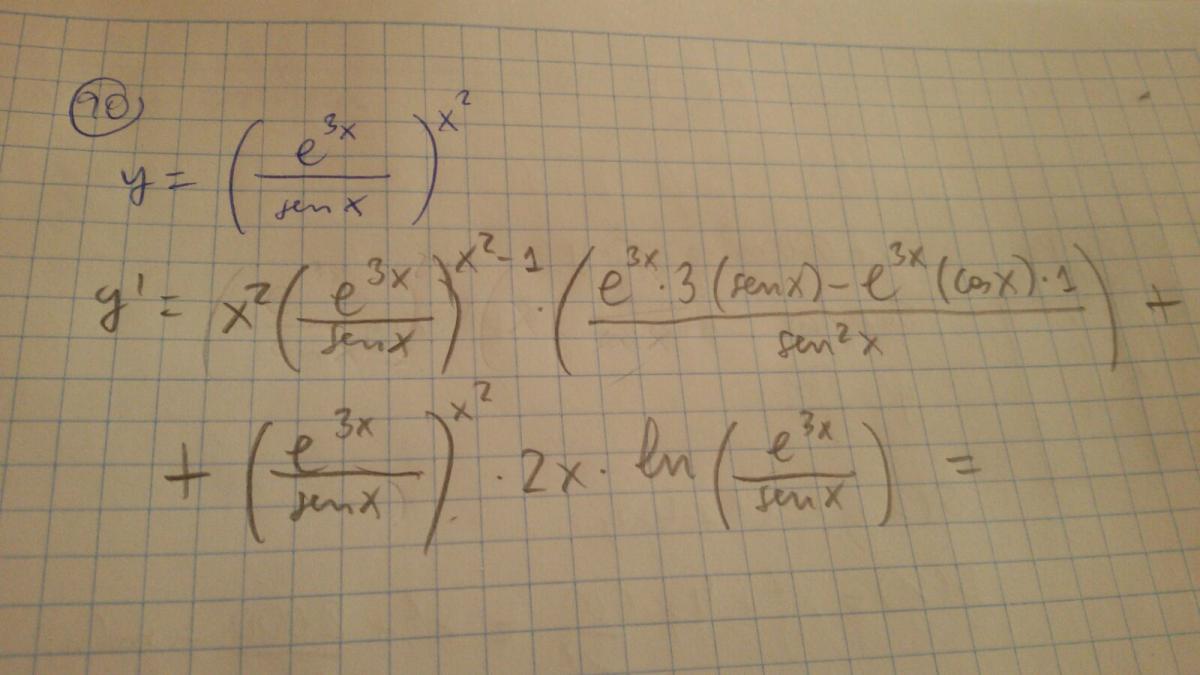 90
y = (e^{3x} / sen x)^{x^2}
y' = x^2 (e^{3x} / sen x)^{x^2 - 1} · (e^{3x} · 3 (sen x) - e^{3x} (cos x) · 1 / sen^2 x) +
+ (e^{3x} / sen x)^{x^2} · 2x · ln (e^{3x} / sen x) =